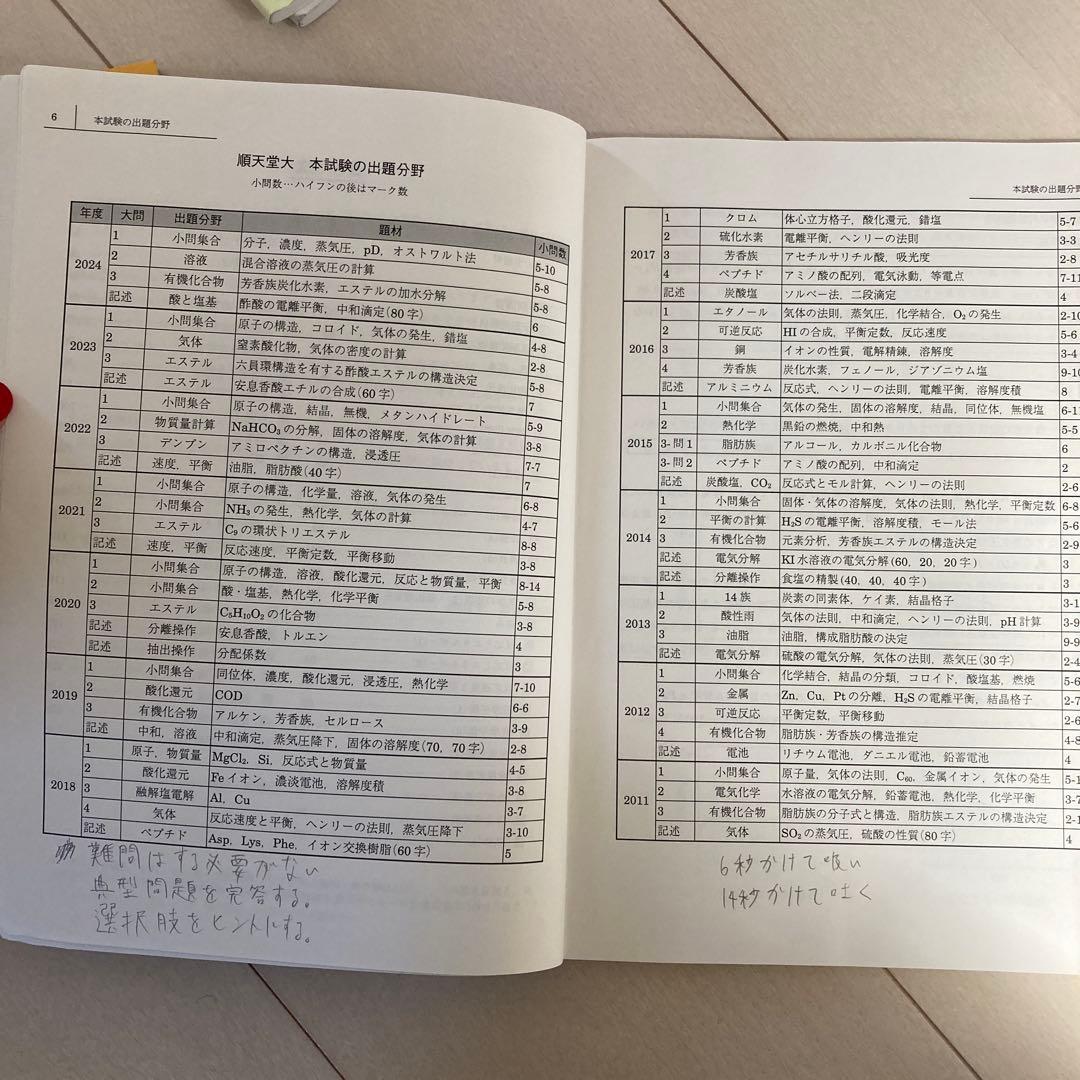 6 本試験の出題分野
順天堂大 本試験の出題分野
小問数…ハイフンの後はマーク数
年度 大問 出題分野 題材 小問数
2024 1 小問集合 分子，濃度，蒸気圧，pD，オストワルト法 5-10
2 溶液 混合溶液の蒸気圧の計算 5-8
3 有機化合物 芳香族炭化水素，エステルの加水分解 5-8
記述 酸と塩基 酢酸の電離平衡，中和滴定(80字) 6
2023 1 小問集合 原子の構造，コロイド，気体の発生，錯塩 4-8
2 気体 窒素酸化物，気体の密度の計算 2-8
3 エステル 六員環構造を有する酢酸エステルの構造決定 5-8
記述 エステル 安息香酸エチルの合成(60字) 7
2022 1 小問集合 原子の構造，結晶，無機，メタンハイドレート 5-9
2 物質量計算 NaHCO₃の分解，固体の溶解度，気体の計算 3-8
3 デンプン アミロペクチンの構造，浸透圧 7-7
記述 速度，平衡 油脂，脂肪酸(40字) 7
2021 1 小問集合 原子の構造，化学量，溶液，気体の発生 6-8
2 小問集合 NH₃の発生，熱化学，気体の計算 4-7
3 エステル C₉の環状トリエステル 8-8
記述 速度，平衡 反応速度，平衡定数，平衡移動 3-8
2020 1 小問集合 原子の構造，溶液，酸化還元，反応と物質量，平衡 8-14
2 小問集合 酸・塩基，熱化学，化学平衡 5-8
3 エステル C₅H₁₀O₂の化合物 3-8
記述 分離操作 安息香酸，トルエン 4
記述 抽出操作 分配係数 3
2019 1 小問集合 同位体，濃度，酸化還元，浸透圧，熱化学 7-10
2 酸化還元 COD 6-6
3 有機化合物 アルケン，芳香族，セルロース 3-9
記述 中和，溶液 中和滴定，蒸気圧降下，固体の溶解度(70，70字) 2-8
2018 1 原子，物質量 MgCl₂，Si，反応式と物質量 4-5
2 酸化還元 Feイオン，濃淡電池，溶解度積 3-8
3 融解塩電解 Al，Cu 3-7
4 気体 反応速度と平衡，ヘンリーの法則，蒸気圧降下 3-10
記述 ペプチド Asp，Lys，Phe，イオン交換樹脂(60字) 5
難問はする必要がない
典型問題を完答する。
選択肢をヒントにする。
本試験の出題分野
2017 1 クロム 体心立方格子，酸化還元，錯塩 5-7
2 硫化水素 電離平衡，ヘンリーの法則 3-3
3 芳香族 アセチルサリチル酸，吸光度 2-8
4 ペプチド アミノ酸の配列，電気泳動，等電点 7-11
記述 炭酸塩 ソルベー法，二段滴定 4
2016 1 エタノール 気体の法則，蒸気圧，化学結合，O₂の発生 2-10
2 可逆反応 HIの合成，平衡定数，反応速度 5-6
3 銅 イオンの性質，電解精錬，溶解度 3-4
4 芳香族 炭化水素，フェノール，ジアゾニウム塩 9-10
記述 アルミニウム 反応式，ヘンリーの法則，電離平衡，溶解度積 8
2015 1 小問集合 気体の発生，固体の溶解度，結晶，同位体，無機塩 6-11
2 熱化学 黒鉛の燃焼，中和熱 5-5
3-問1 脂肪族 アルコール，カルボニル化合物 6
3-問2 ペプチド アミノ酸の配列，中和滴定 2
記述 炭酸塩，CO₂ 反応式とモル計算，ヘンリーの法則 2-6
2014 1 小問集合 固体・気体の溶解度，気体の法則，熱化学，平衡定数 6-8
2 平衡の計算 H₂Sの電離平衡，溶解度積，モール法 5-6
3 有機化合物 元素分析，芳香族エステルの構造決定 2-9
記述 電気分解 KI水溶液の電気分解(60，20，20字) 3
記述 分離操作 食塩の精製(40，40，40字) 3
2013 1 14族 炭素の同素体，ケイ素，結晶格子 3-1
2 酸性雨 気体の法則，中和滴定，ヘンリーの法則，pH計算 3-9
3 油脂 油脂，構成脂肪酸の決定 9-9
記述 電気分解 硫酸の電気分解，気体の法則，蒸気圧(30字) 2-4
2012 1 小問集合 化学結合，結晶の分類，コロイド，酸塩基，燃焼 5-6
2 金属 Zn，Cu，Ptの分離，H₂Sの電離平衡，結晶格子 2-7
3 可逆反応 平衡定数，平衡移動 2-6
4 有機化合物 脂肪族・芳香族の構造推定 4-8
記述 電池 リチウム電池，ダニエル電池，鉛蓄電池 4
2011 1 小問集合 原子量，気体の法則，C₆₀，金属イオン，気体の発生 5-1
2 電気化学 水溶液の電気分解，鉛蓄電池，熱化学，化学平衡 3-7
3 有機化合物 脂肪族の分子式と構造，脂肪族エステルの構造決定 2-1
記述 気体 SO₂の蒸気圧，硫酸の性質(80字) 4
6秒かけて吸い
14秒かけて吐く